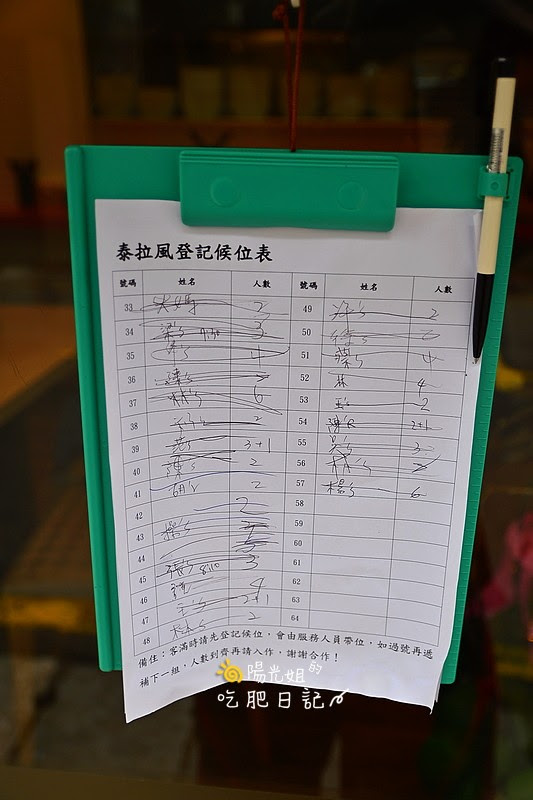 泰拉風登記候位表
號碼 姓名 人數 號碼 姓名 人數
33 大媽 2 49 2
34 梁's 9:30 3 50 徐's 2
35 4 51 蔡's 4
36 陳's 52 林 4
37 林's 6 53 2
38 2 54 陳's 2+1
39 3+1 55 吳's 3
40 陳's 2 56 林's 2
41 胡's 2 57 楊's 6
42 2 58
43 59
44 60
45 張's 8:10 3 61
46 4 62
47 王's 2+1 63
48 林's 2 64
備住：客滿時請先登記候位，會由服務人員帶位，如過號再遞
補下一組，人數到齊再請入作，謝謝合作！
陽光姐的
吃肥日記